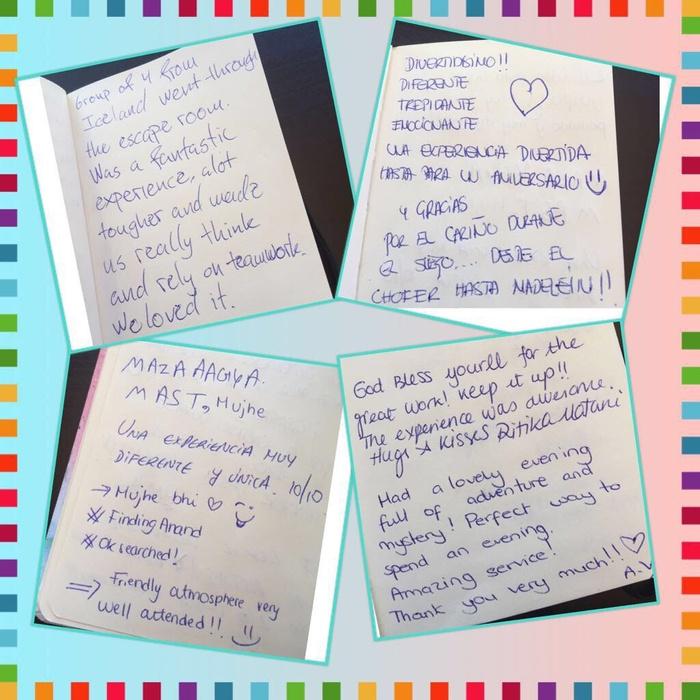 Group of 4 from
Iceland went through
the escape room.
Was a fantastic
experience, alot
tougher and made
us really think
and rely on teamwork.
We loved it.
DIVERTIDISIMO!!
DIFERENTE
TREPIDANTE
EMOCIONANTE
UNA EXPERIENCIA DIVERTIDA
HASTA PARA UN ANIVERSARIO
Y GRACIAS
POR EL CARIÑO DURANTE
EL DESDE EL
CHOFER HASTA MADELEIN!!
MAZA AAGYA.
MAST, Mujhe
UNA EXPERIENCIA MUY
DIFERENTE Y ÚNICA. 10/10
→ Mujhe bhi ♡
* Finding Anand
* Ok searched!
⇒ Friendly atmosphere very
well attended!!
God Bless yourll for the
great work! Keep it up!!
The experience was awesome..
Hugs & Kisses Ritika Matani
Had a lovely evening
full of adventure and
mystery! Perfect way to
spend an evening.
Amazing service!
Thank you very much!! ♡
A.V